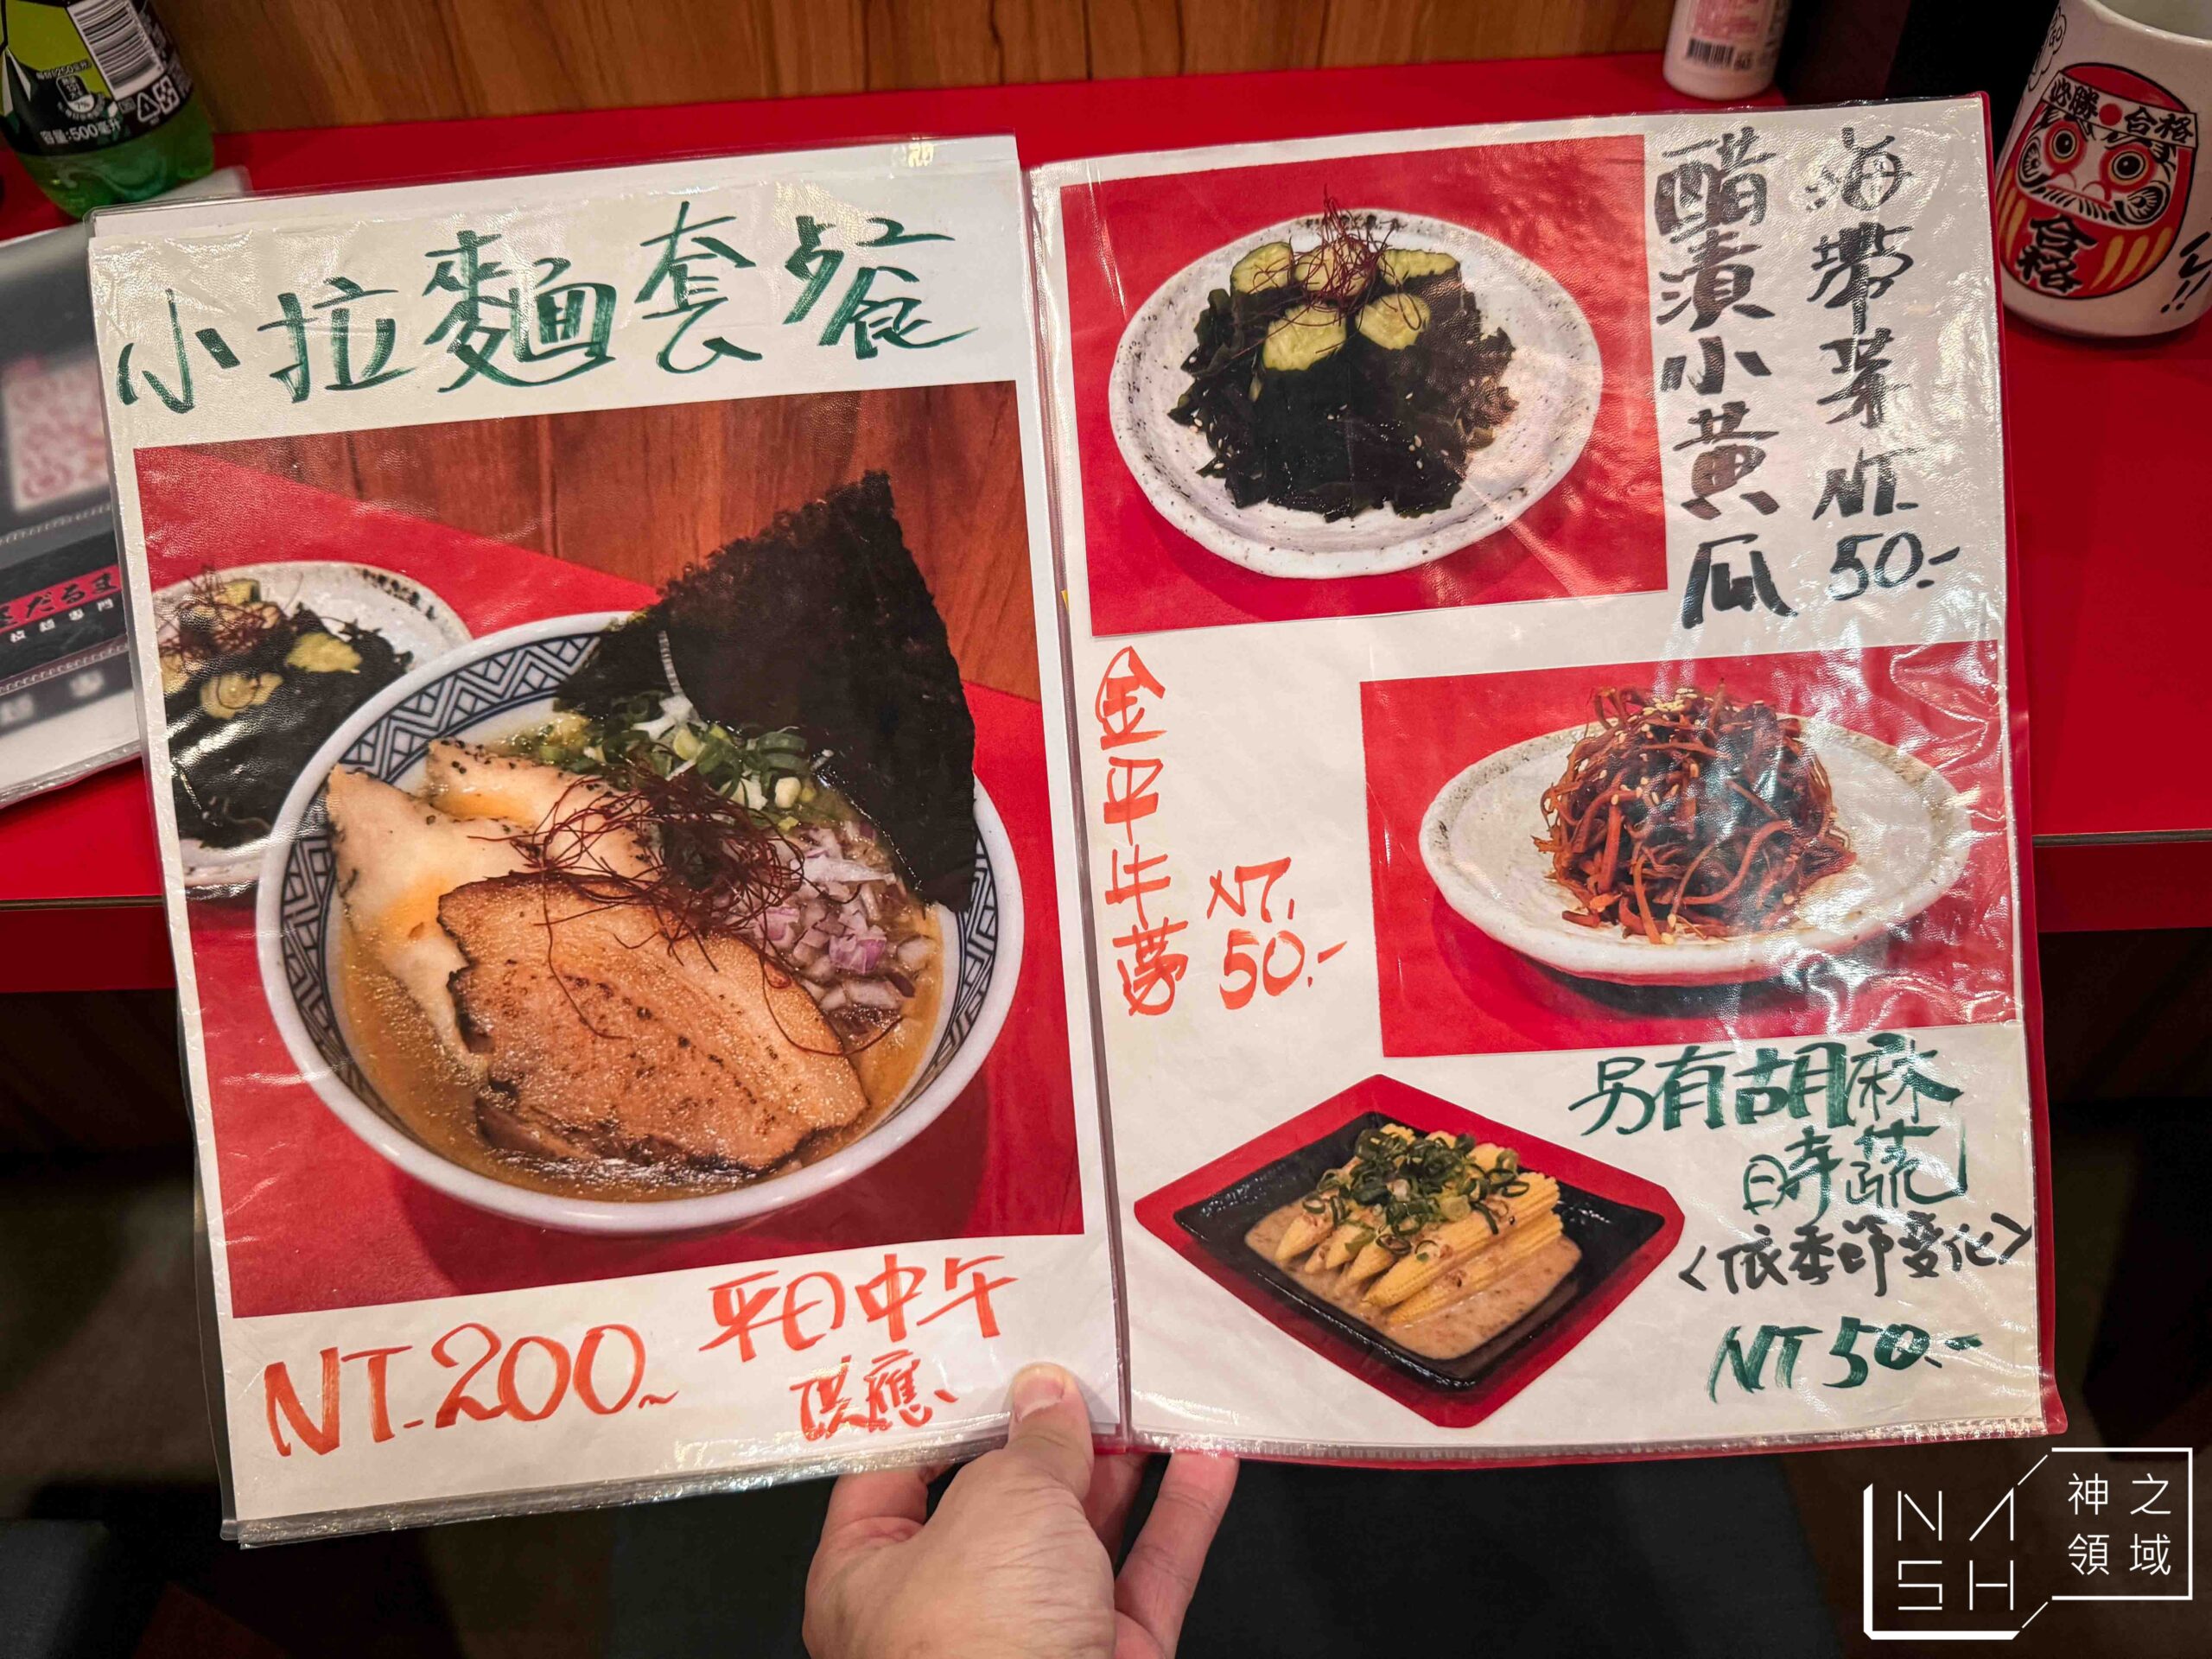 小拉麵套餐
NT.200~
平日中午
供應
海帶芽 NT. 50.-
醋漬小黃瓜
金日牛蒡
NT. 50.-
另有胡麻
時蔬
<依季節變化>
NT 50.-
容量:500毫升
だるま
拉麵專門
必勝 合格
合格
NASH
神之
領域